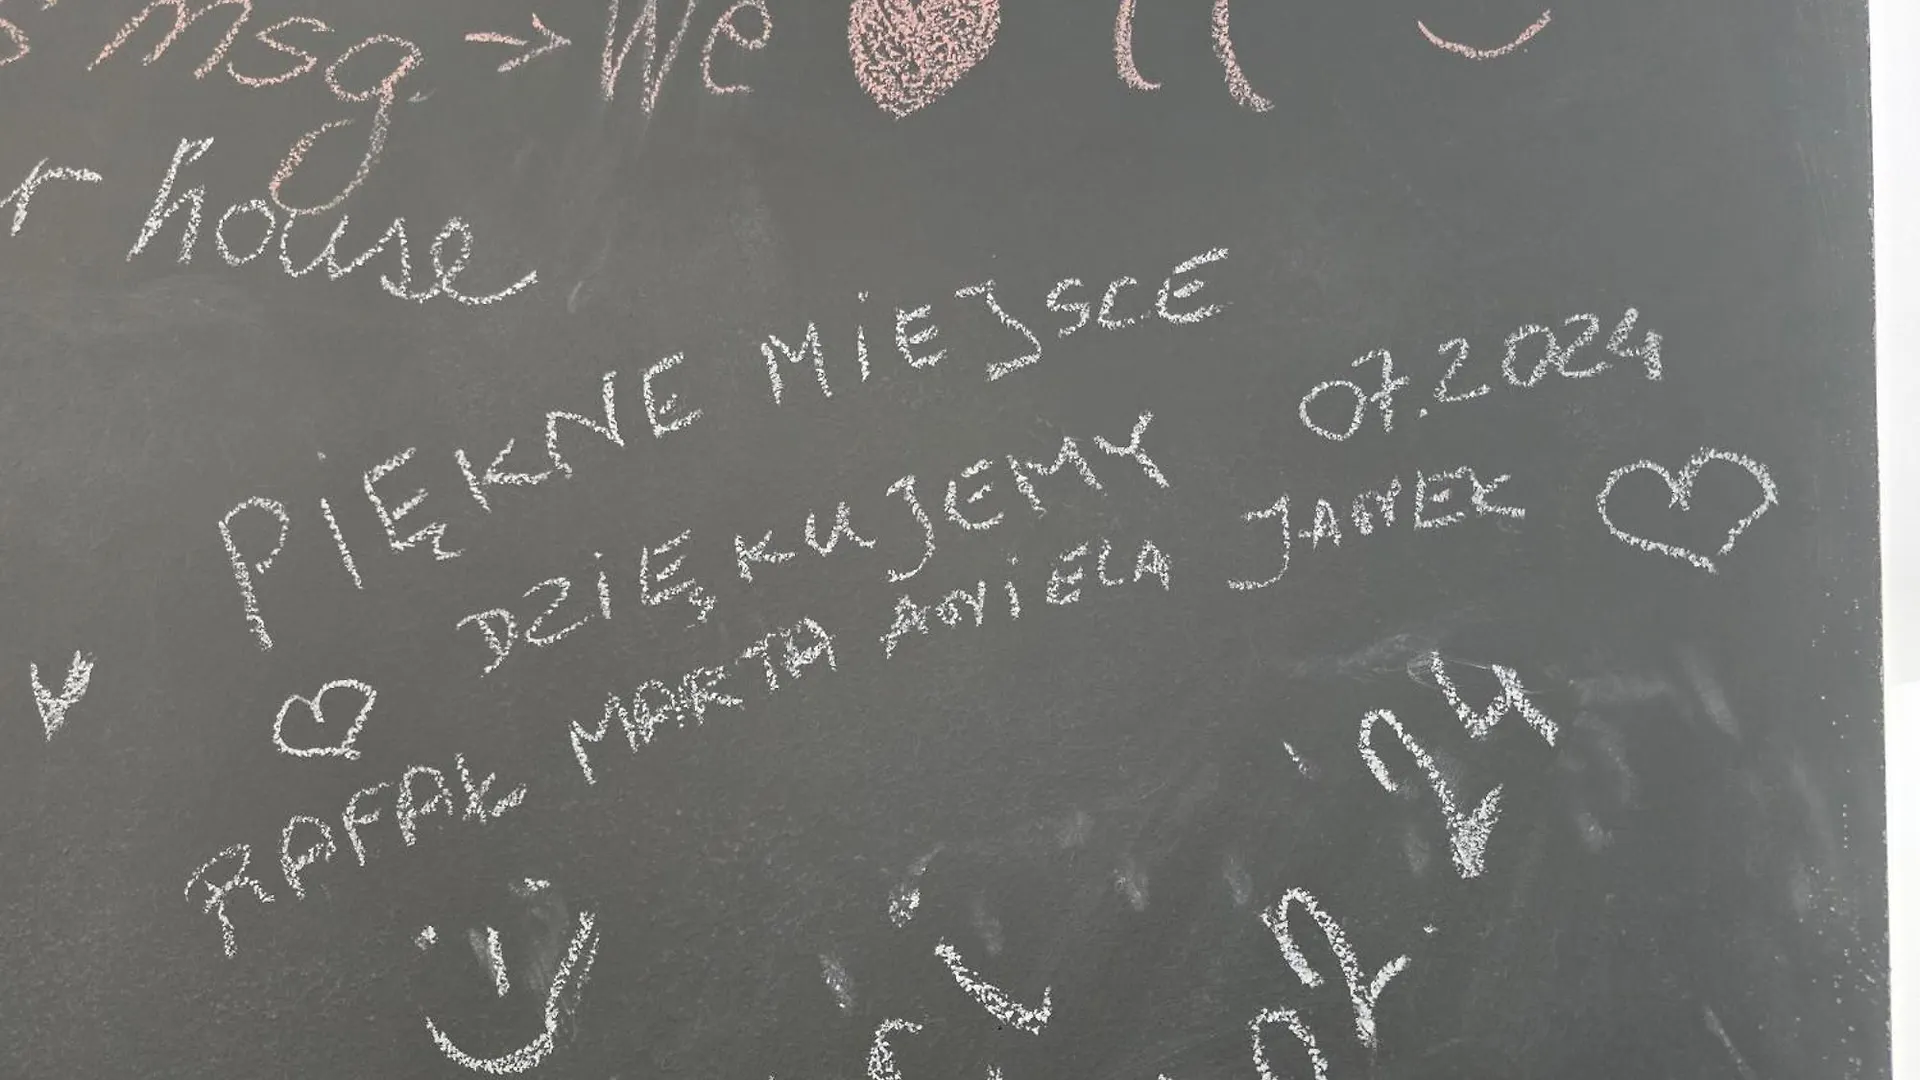 msg → We
house
PIĘKNE MIEJSCE
07.2024
DZIĘKUJEMY
RAFAŁ MARTA ANIELA JANEK